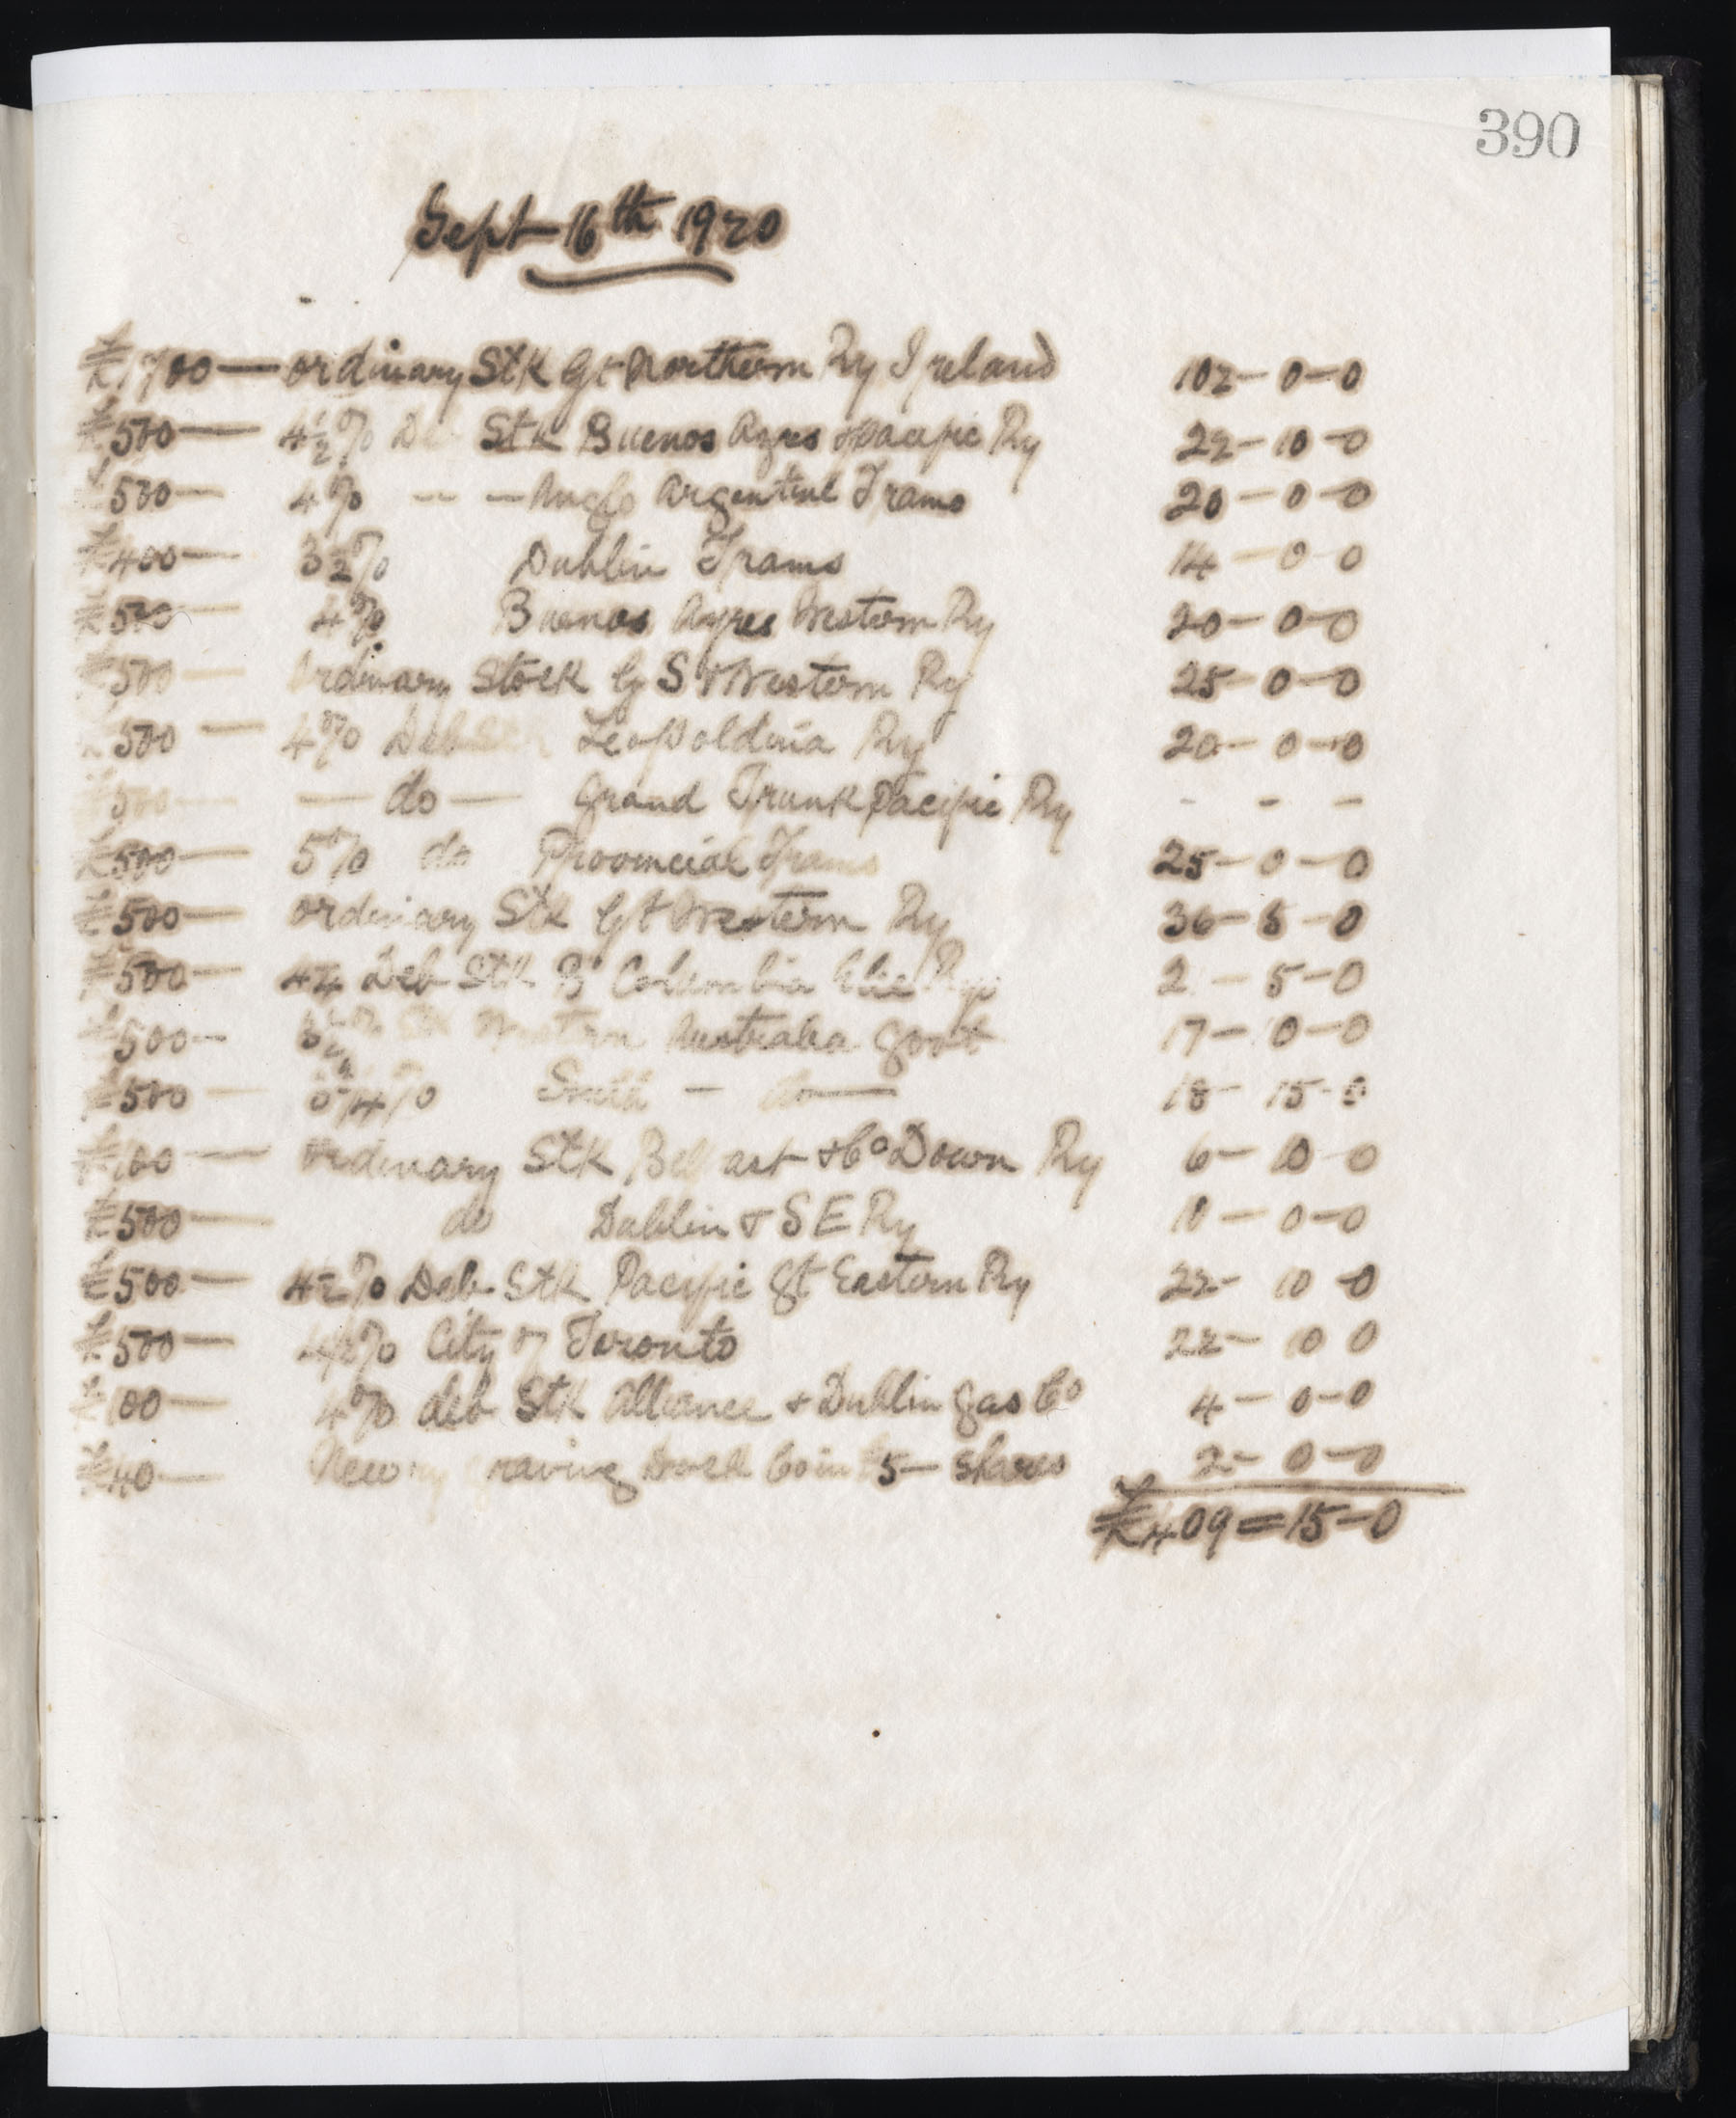 390
Sept 16th 1920
£1700 — ordinary Stk Gt Northern Ry Ireland 102 - 0 - 0
£500 — 4½% Deb Stk Buenos Ayres & Pacific Ry 22 - 10 - 0
£500 — 4% — — Anglo Argentine Trams 20 - 0 - 0
£400 — 3½% Dublin Trams 14 - 0 0
£500 — 4% Buenos Ayres Western Ry 20 - 0 - 0
£500 — ordinary Stock G S & Western Ry 25 - 0 - 0
£500 — 4% Deb Stk Leopoldina Ry 20 - 0 - 0
£500 — — do — Grand Trunk Pacific Ry - - -
£500 — 5% do Provincial Trams 25 - 0 - 0
£500 — ordinary Stk Gt Western Ry 36 - 5 - 0
£500 — 4¼ Deb Stk B Columbia Elec Ry 2 - 5 - 0
£500 — 3½% Western Australia Govt 17 - 10 - 0
£500 — 3¾% South — do — 18 - 15 - 0
£100 — ordinary Stk Belfast & Co Down Ry 6 - 10 0
£500 — do Dublin & S E Ry 10 - 0 - 0
£500 — 4½% Deb Stk Pacific Gt Eastern Ry 22 - 10 - 0
£500 — 4½% City of Toronto 22 - 10 0
£100 — 4% deb Stk Alliance & Dublin Gas Co 4 - 0 - 0
£40 — Newry Graving Dock Co in £5 — Shares 2 - 0 - 0
£409 = 15 - 0